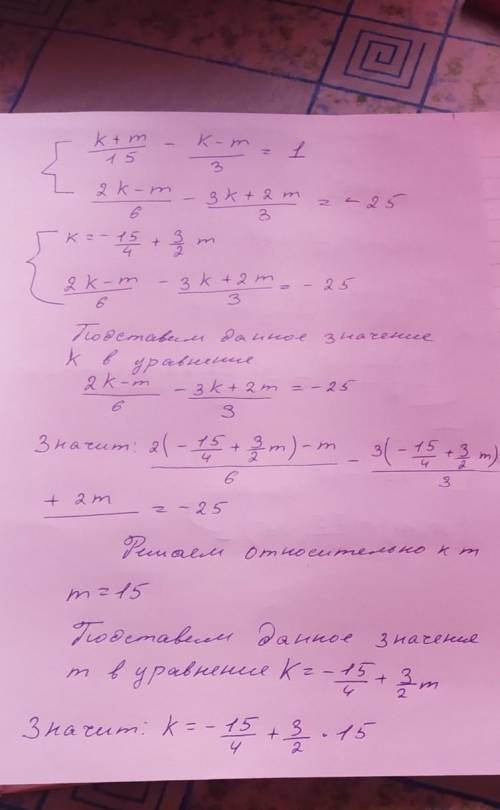 { (k+m)/15 - (k-m)/3 = 1
(2k-m)/6 - (3k+2m)/3 = -25
{ k = -15/4 + 3/2 m
(2k-m)/6 - (3k+2m)/3 = -25
Подставим данное значение
k в уравнение
(2k-m)/6 - (3k+2m)/3 = -25
Значит: (2(-15/4 + 3/2 m)-m)/6 - (3(-15/4 + 3/2 m)/3
+ 2m = -25
Решаем относительно к m
m = 15
Подставим данное значение
m в уравнение K = -15/4 + 3/2 m
Значит: k = -15/4 + 3/2 · 15